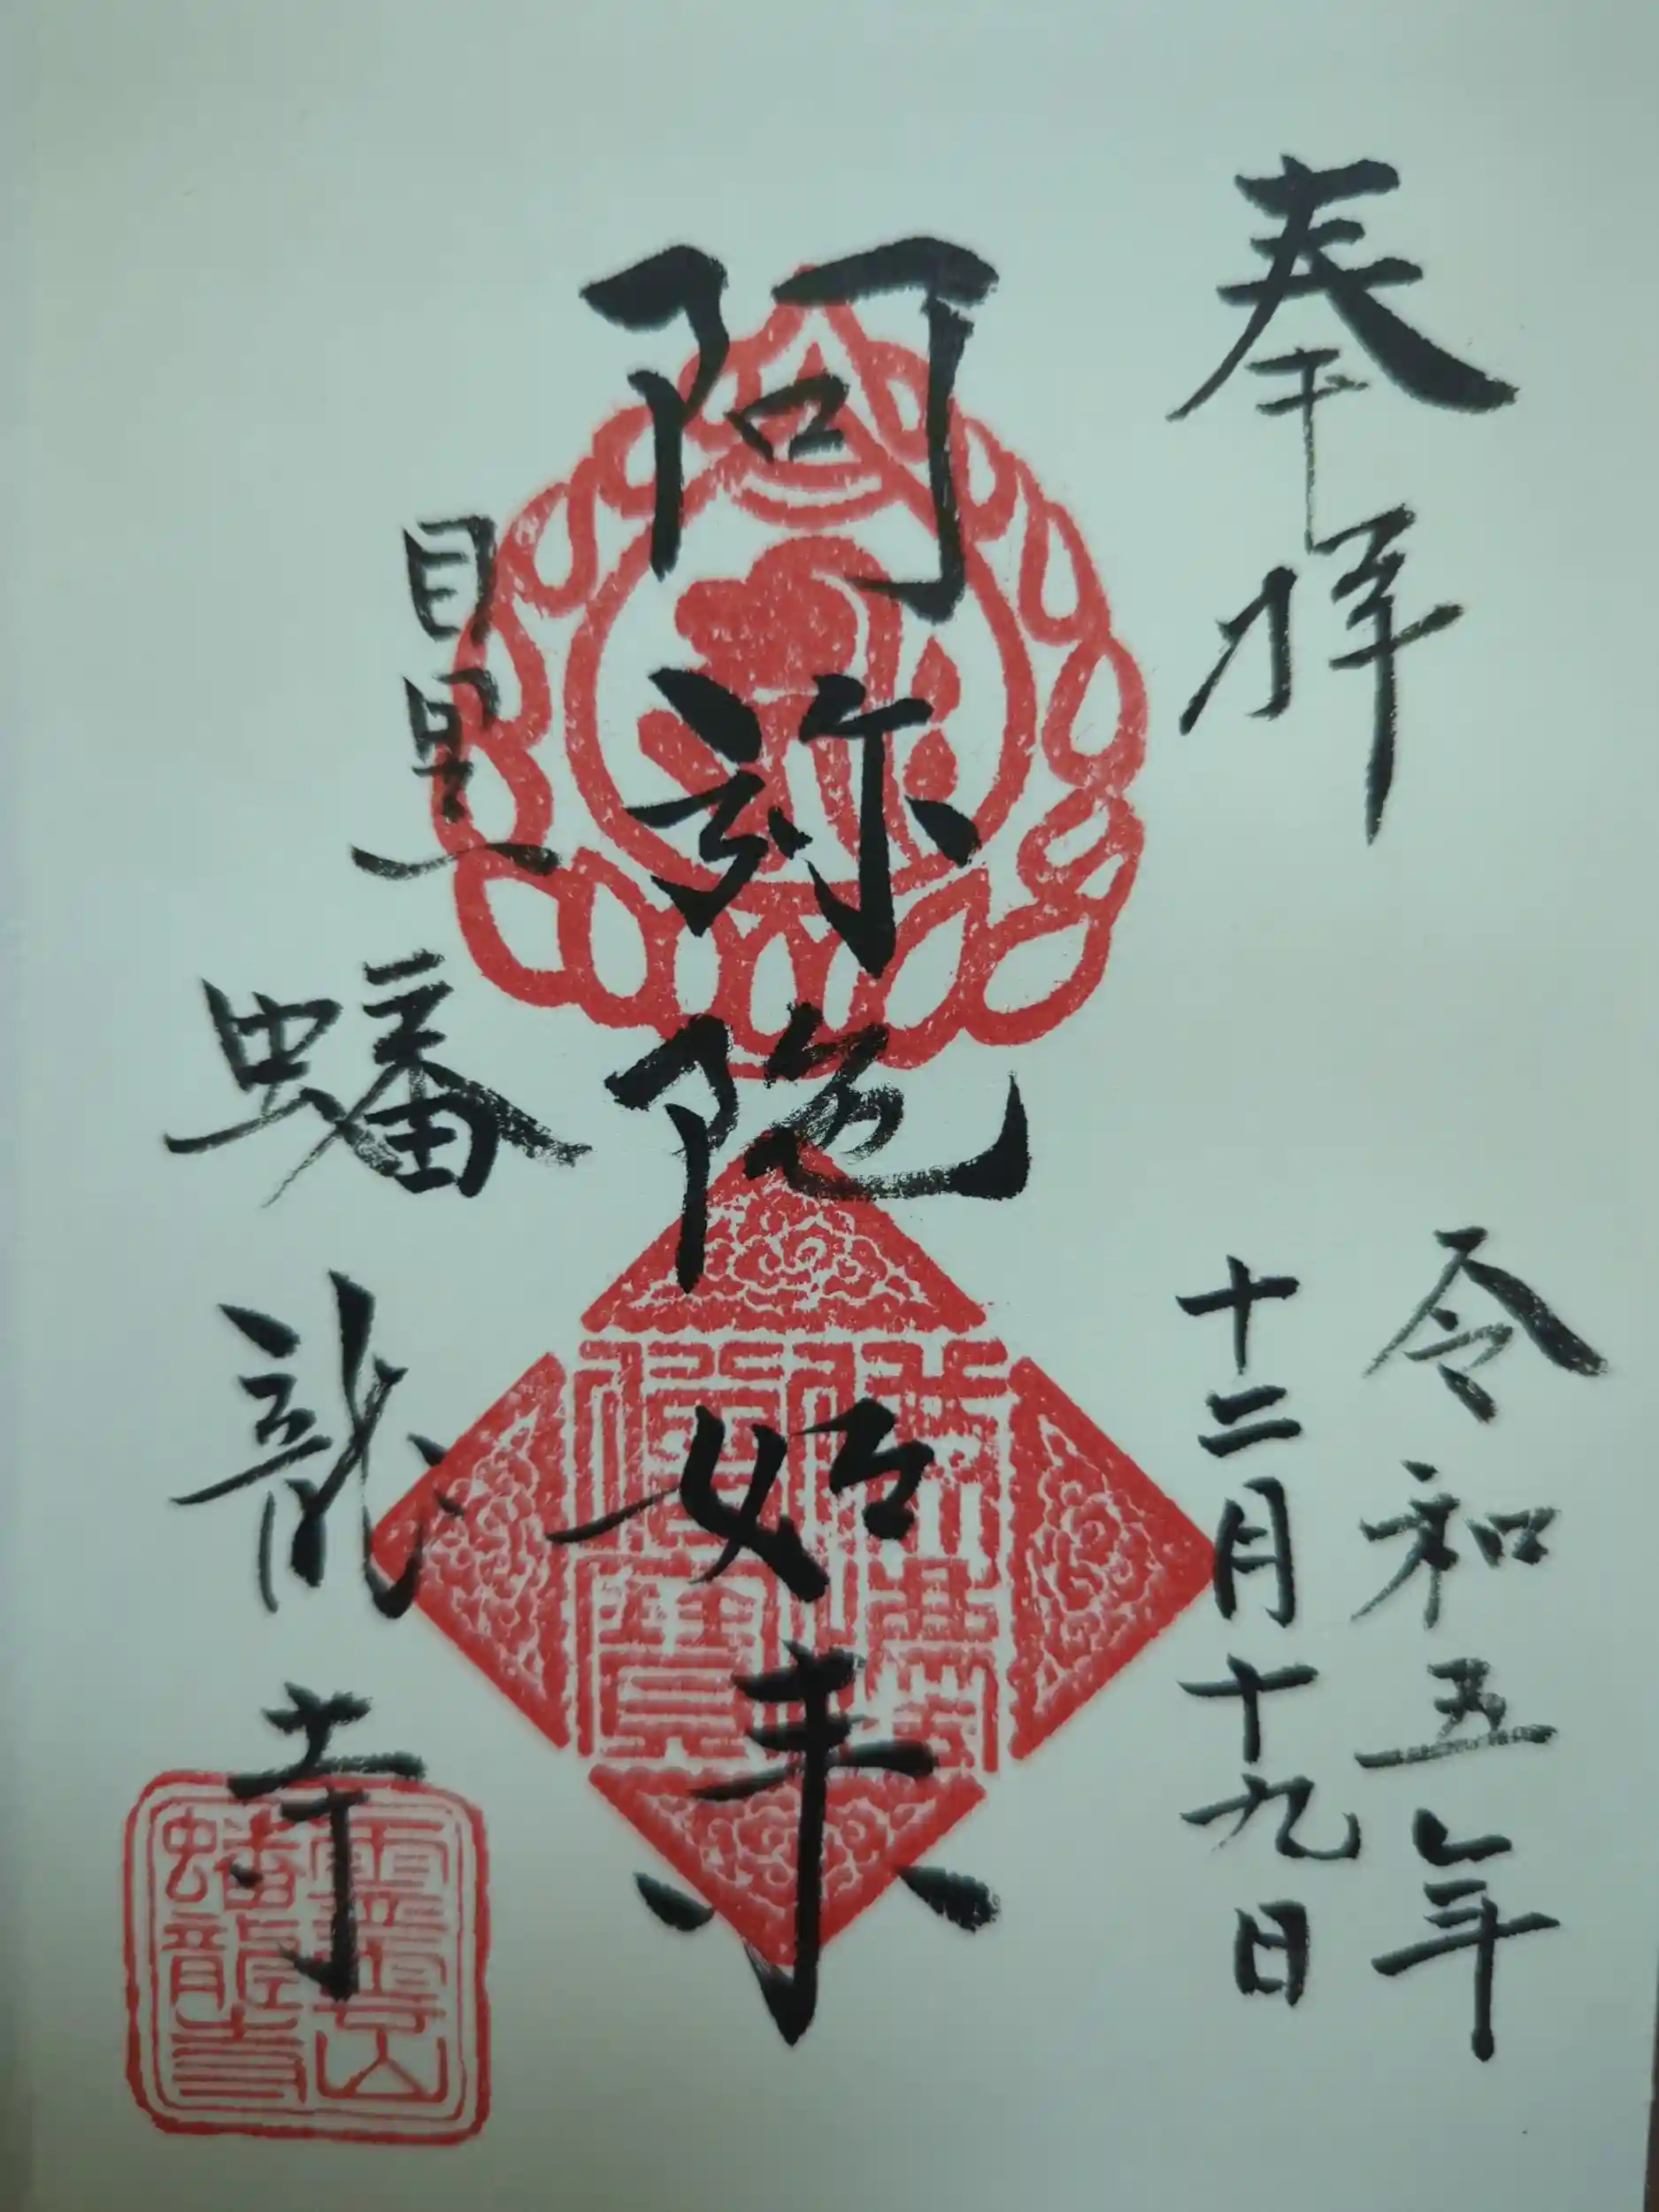 奉拝
令和五年
十二月十九日
阿弥陀如来
目黒
蟠龍寺
佛法僧寳
霊雲山
蟠龍寺